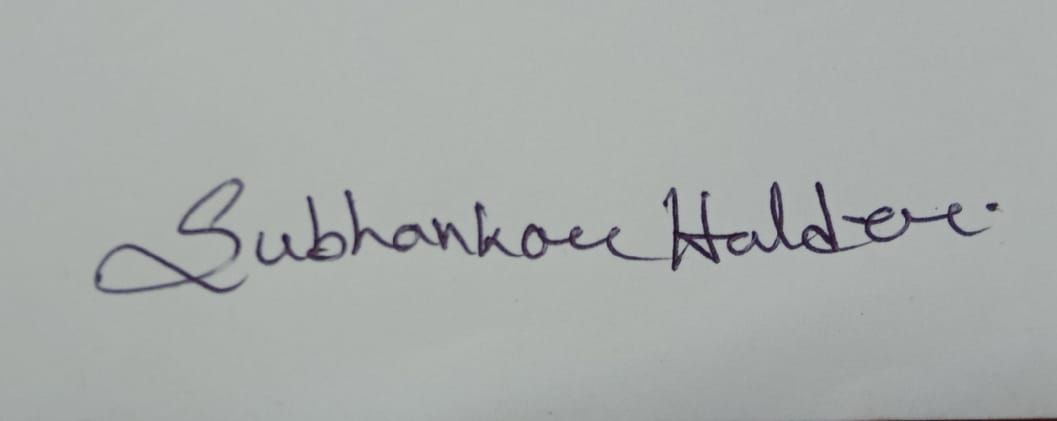 Subhankar Haldar.